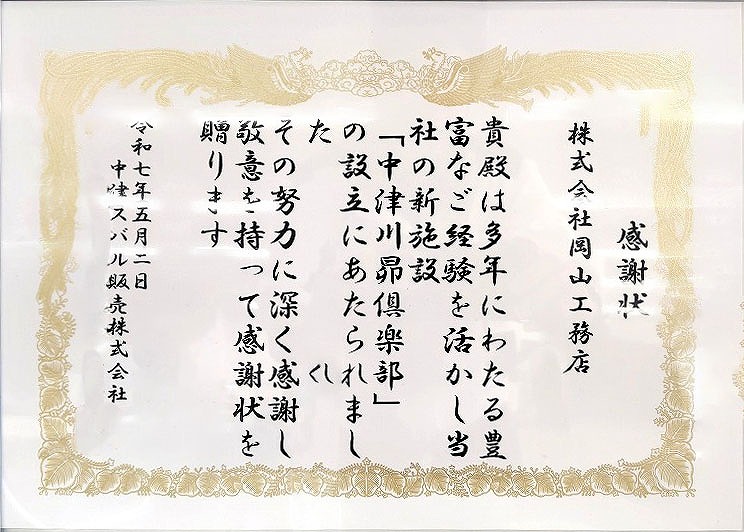 感謝状
株式会社岡山工務店
貴殿は多年にわたる豊
富なご経験を活かし当
社の新施設
「中津川昴倶楽部」
の設立にあたられまし
た
その努力に深く感謝し
敬意を持って感謝状を
贈ります
令和七年五月二日
中津スバル販売株式会社